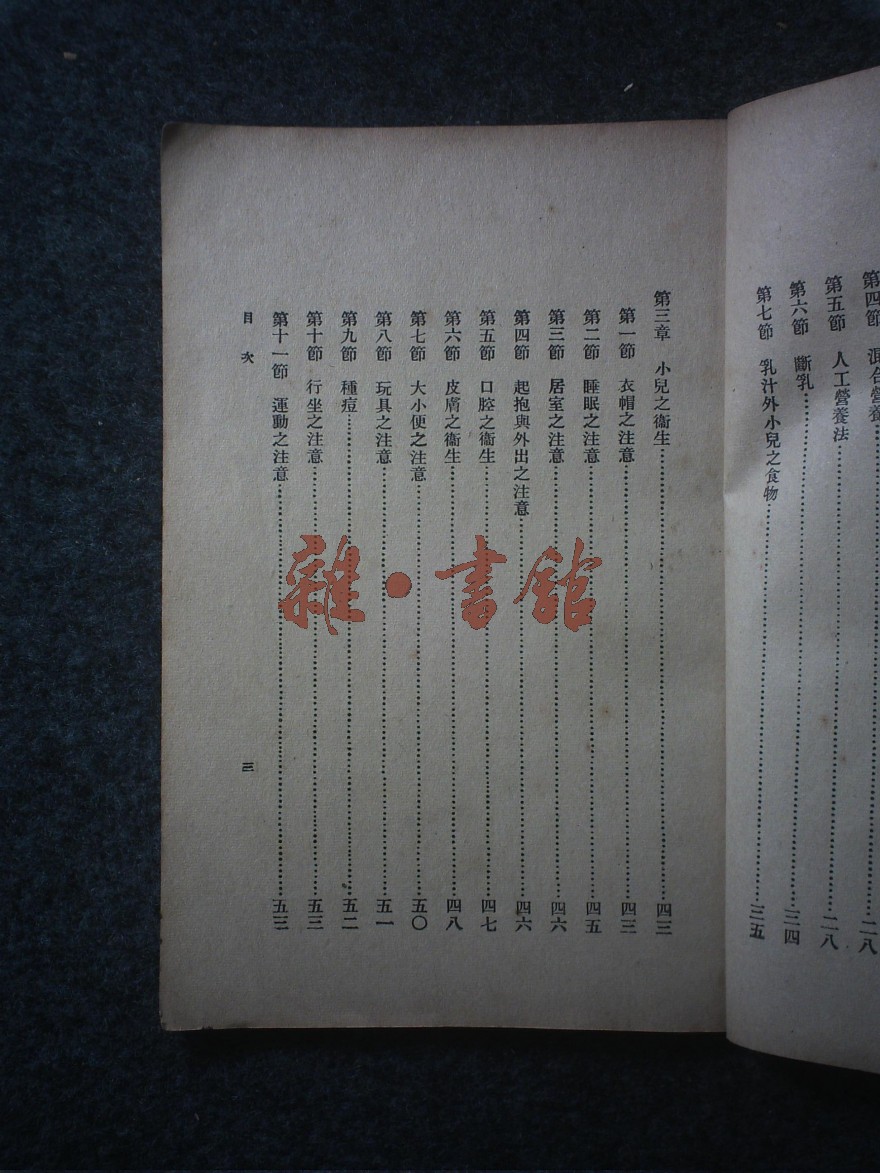 第四節　混合營養…………二八
第五節　人工營養法…………二八
第六節　斷乳…………三四
第七節　乳汁外小兒之食物…………三五
第三章　小兒之衞生…………四三
第一節　衣帽之注意…………四三
第二節　睡眠之注意…………四五
第三節　居室之注意…………四六
第四節　起抱與外出之注意…………四六
第五節　口腔之衞生…………四七
第六節　皮膚之衞生…………四八
第七節　大小便之注意…………五〇
第八節　玩具之注意…………五一
第九節　種痘…………五二
第十節　行坐之注意…………五三
第十一節　運動之注意…………五三
目次
三
雜·書館